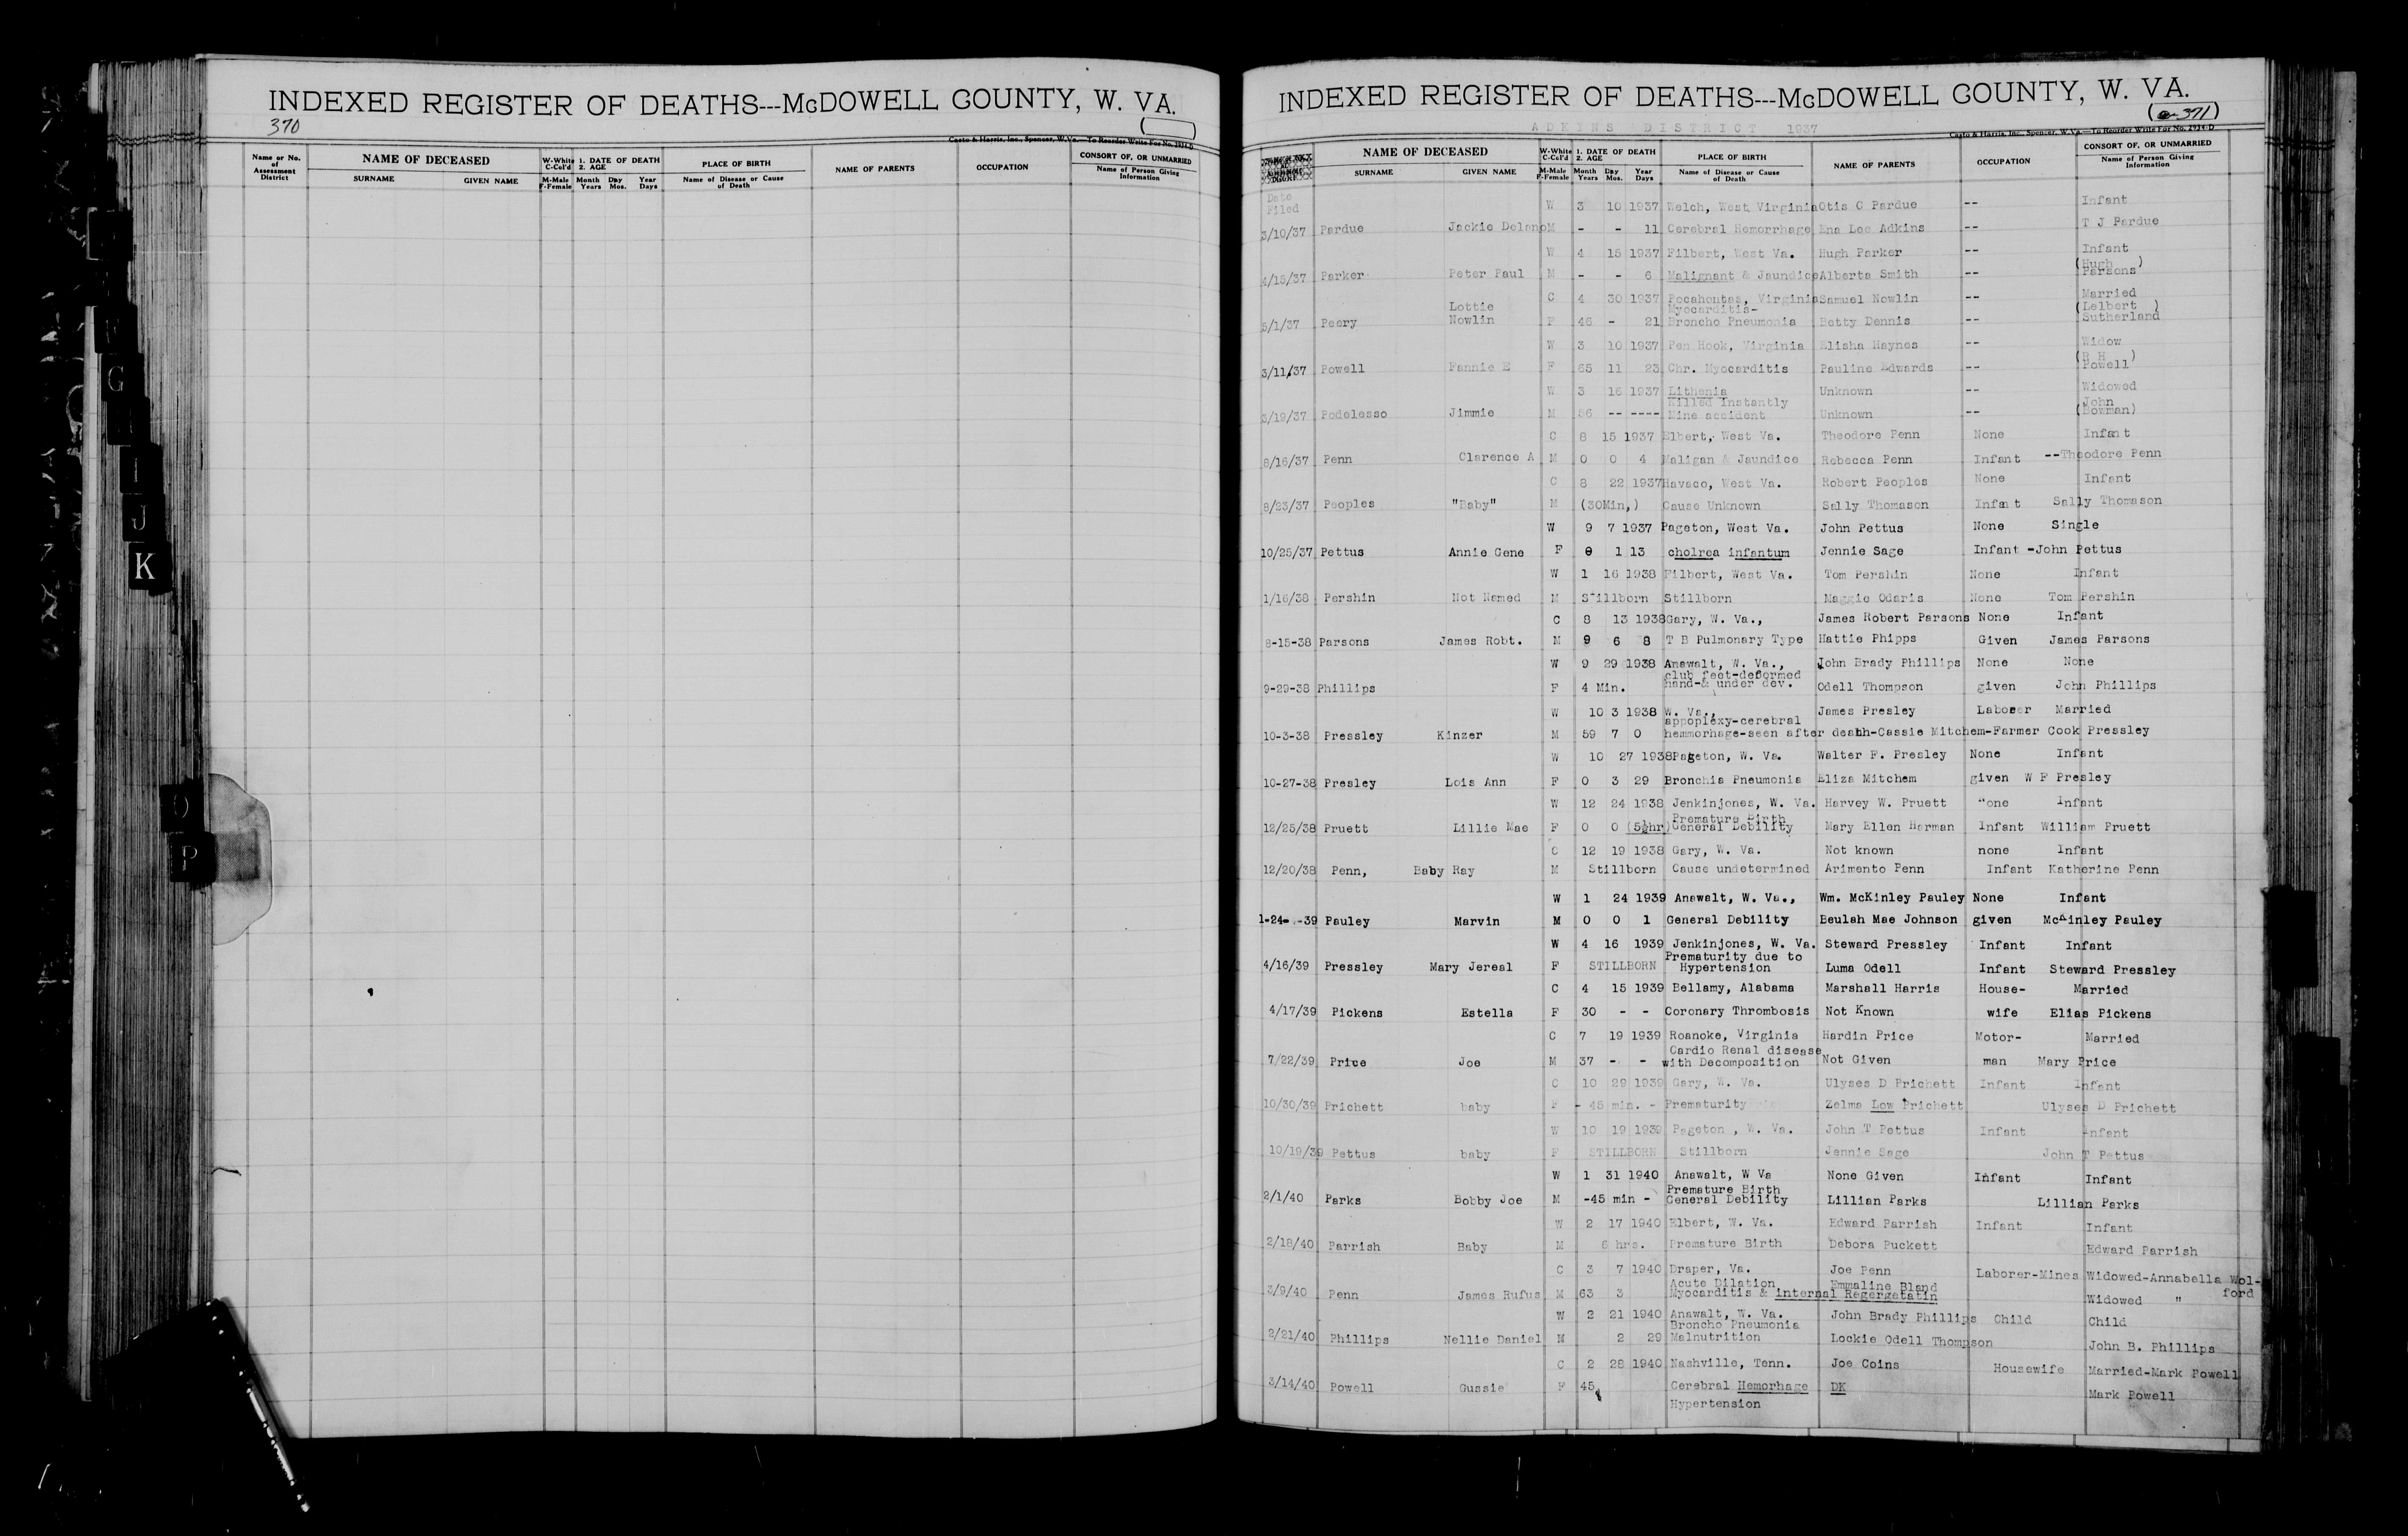 INDEXED REGISTER OF DEATHS---McDOWELL COUNTY, W. VA.
370
Casto & Harris, Inc., Spencer, W.Va.—To Reorder Write For No. 1914-D
Name or No. of Assessment District
NAME OF DECEASED
SURNAME GIVEN NAME
W-White C-Col'd
M-Male F-Female
1. DATE OF DEATH
2. AGE
Month Day Year
Years Mos. Days
PLACE OF BIRTH
Name of Disease or Cause of Death
NAME OF PARENTS
OCCUPATION
CONSORT OF, OR UNMARRIED
Name of Person Giving Information
G
I
J
K
O
P
INDEXED REGISTER OF DEATHS---McDOWELL COUNTY, W. VA.
(371)
ADKINS DISTRICT 1937
Casto & Harris, Inc., Spencer, W.Va.—To Reorder Write For No. 1914-D
NAME OF DECEASED
SURNAME GIVEN NAME
W-White C-Col'd
M-Male F-Female
1. DATE OF DEATH
2. AGE
Month Day Year
Years Mos. Days
PLACE OF BIRTH
Name of Disease or Cause of Death
NAME OF PARENTS
OCCUPATION
CONSORT OF, OR UNMARRIED
Name of Person Giving Information
Date Filed
W 3 10 1937 Welch, West Virginia Otis C Pardue -- Infant
3/10/37 Pardue Jackie Delano M - - 11 Cerebral Hemorrhage Ena Lee Adkins -- T J Pardue
W 4 15 1937 Filbert, West Va. Hugh Parker -- Infant
4/15/37 Parker Peter Paul M - - 6 Malignant & Jaundice Alberta Smith -- (Hugh Parsons)
C 4 30 1937 Pocahontas, Virginia Samuel Nowlin -- Married
5/1/37 Peery Lottie Nowlin F 46 - 21 Myocarditis- Broncho Pneumonia Betty Dennis -- (Lelbert Sutherland)
W 3 10 1937 Pen Hook, Virginia Elisha Haynes -- Widow
3/11/37 Powell Fannie E F 65 11 23 Chr. Myocarditis Pauline Edwards -- (R H Powell)
W 3 16 1937 Lithenia Unknown -- Widowed
3/19/37 Podelesso Jimmie M 56 -- ---- Killed Instantly Mine accident Unknown -- John (Bowman)
C 8 15 1937 Elbert, West Va. Theodore Penn None Infant
8/16/37 Penn Clarence A M 0 0 4 Maligan & Jaundice Rebecca Penn Infant --Theodore Penn
C 8 22 1937 Havaco, West Va. Robert Peoples None Infant
8/23/37 Peoples "Baby" M (30Min,) Cause Unknown Sally Thomason Infant Sally Thomason
W 9 7 1937 Pageton, West Va. John Pettus None Single
10/25/37 Pettus Annie Gene F 0 1 13 cholrea infantum Jennie Sage Infant -John Pettus
W 1 16 1938 Filbert, West Va. Tom Pershin None Infant
1/16/38 Pershin Not Named M Stillborn Stillborn Maggie Odaris None Tom Pershin
C 8 13 1938 Gary, W. Va., James Robert Parsons None Infant
8-15-38 Parsons James Robt. M 9 6 8 T B Pulmonary Type Hattie Phipps Given James Parsons
W 9 29 1938 Anawalt, W. Va., John Brady Phillips None None
9-29-38 Phillips F 4 Min. club feet-deformed hand-& under dev. Odell Thompson given John Phillips
W 10 3 1938 W. Va., James Presley Laborer Married
10-3-38 Pressley Kinzer M 59 7 0 appoplexy-cerebral hemmorhage-seen after death-Cassie Mitchem-Farmer Cook Pressley
W 10 27 1938 Pageton, W. Va. Walter F. Presley None Infant
10-27-38 Presley Lois Ann F 0 3 29 Bronchia Pneumonia Eliza Mitchem given W F Presley
W 12 24 1938 Jenkinjones, W. Va. Harvey W. Pruett "one Infant
12/25/38 Pruett Lillie Mae F 0 0 (5½hr) Premature Birth General Debility Mary Ellen Harman Infant William Pruett
C 12 19 1938 Gary, W. Va. Not known none Infant
12/20/38 Penn, Baby Ray M Stillborn Cause undetermined Arimento Penn Infant Katherine Penn
W 1 24 1939 Anawalt, W. Va., Wm. McKinley Pauley None Infant
1-24- -39 Pauley Marvin M 0 0 1 General Debility Beulah Mae Johnson given McKinley Pauley
W 4 16 1939 Jenkinjones, W. Va. Steward Pressley Infant Infant
4/16/39 Pressley Mary Jereal F STILLBORN Prematurity due to Hypertension Luma Odell Infant Steward Pressley
C 4 15 1939 Bellamy, Alabama Marshall Harris House- Married
4/17/39 Pickens Estella F 30 - - Coronary Thrombosis Not Known wife Elias Pickens
C 7 19 1939 Roanoke, Virginia Hardin Price Motor- Married
7/22/39 Price Joe M 37 - - Cardio Renal disease with Decomposition Not Given man Mary Price
C 10 29 1939 Gary, W. Va. Ulyses D Prichett Infant Infant
10/30/39 Prichett baby F - 45 min. - Prematurity Zelma Low Prichett Ulyses D Prichett
W 10 19 1939 Pageton , W. Va. John T Pettus Infant Infant
10/19/39 Pettus baby F STILLBORN Stillborn Jennie Sage John T Pettus
W 1 31 1940 Anawalt, W Va None Given Infant Infant
2/1/40 Parks Bobby Joe M -45 min - Premature Birth General Debility Lillian Parks Lillian Parks
W 2 17 1940 Elbert, W. Va. Edward Parrish Infant Infant
2/18/40 Parrish Baby M 6 hrs. Premature Birth Debora Puckett Edward Parrish
C 3 7 1940 Draper, Va. Joe Penn Laborer-Mines Widowed-Annabella Wol-ford
3/9/40 Penn James Rufus M 63 3 Acute Dilation Myocarditis & internal Regergetatin Emmaline Bland Widowed "
W 2 21 1940 Anawalt, W. Va. John Brady Phillips Child Child
2/21/40 Phillips Nellie Daniel M 2 29 Broncho Pneumonia Malnutrition Lockie Odell Thompson John B. Phillips
C 2 28 1940 Nashville, Tenn. Joe Coins Housewife Married-Mark Powell
3/14/40 Powell Gussie F 45 Cerebral Hemorhage DK Mark Powell
Hypertension